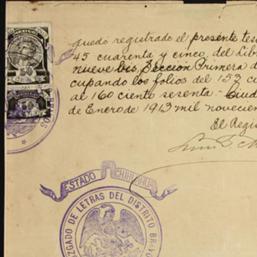 quedo registrado el presente tes
45 cuarenta y cinco del Lib
nueve bis, Sección Primera d
cupando los folios del 152 ci
al 160 ciento sesenta - Ciud
de Enero de 1913 mil novecien
El Regis
ESTADO CHIHUAHUA
JUZGADO DE LETRAS DEL DISTRITO BRAVOS